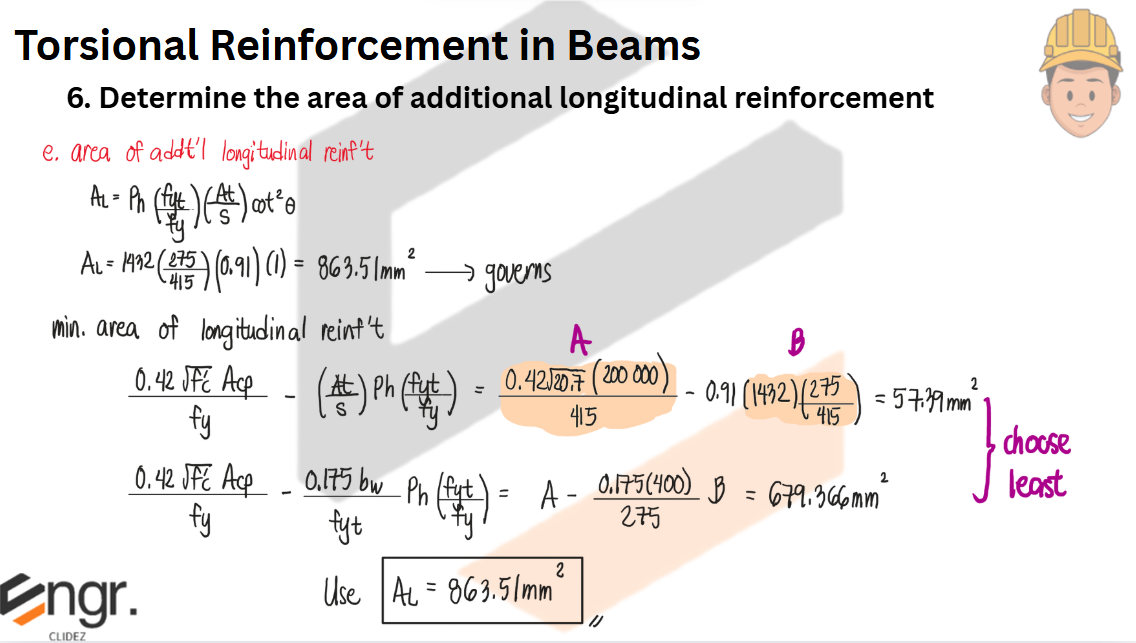 Torsional Reinforcement in Beams
6. Determine the area of additional longitudinal reinforcement
e. area of addt'l longitudinal reinf't
AL = Ph (fyt/fy)(At/s) cot²θ
AL = 1432 (275/415)(0.91)(1) = 863.51mm² → governs
min. area of longitudinal reinf't
A B
0.42 √f'c Acp / fy - (At/s) Ph (fyt/fy) = 0.42√20.7 (200 000) / 415 - 0.91 (1432)(275/415) = 57.39mm²
choose
least
0.42 √f'c Acp / fy - 0.175 bw / fyt Ph (fyt/fy) = A - 0.175(400) / 275 B = 679.366mm²
Use AL = 863.51mm²
Engr.
CLIDEZ